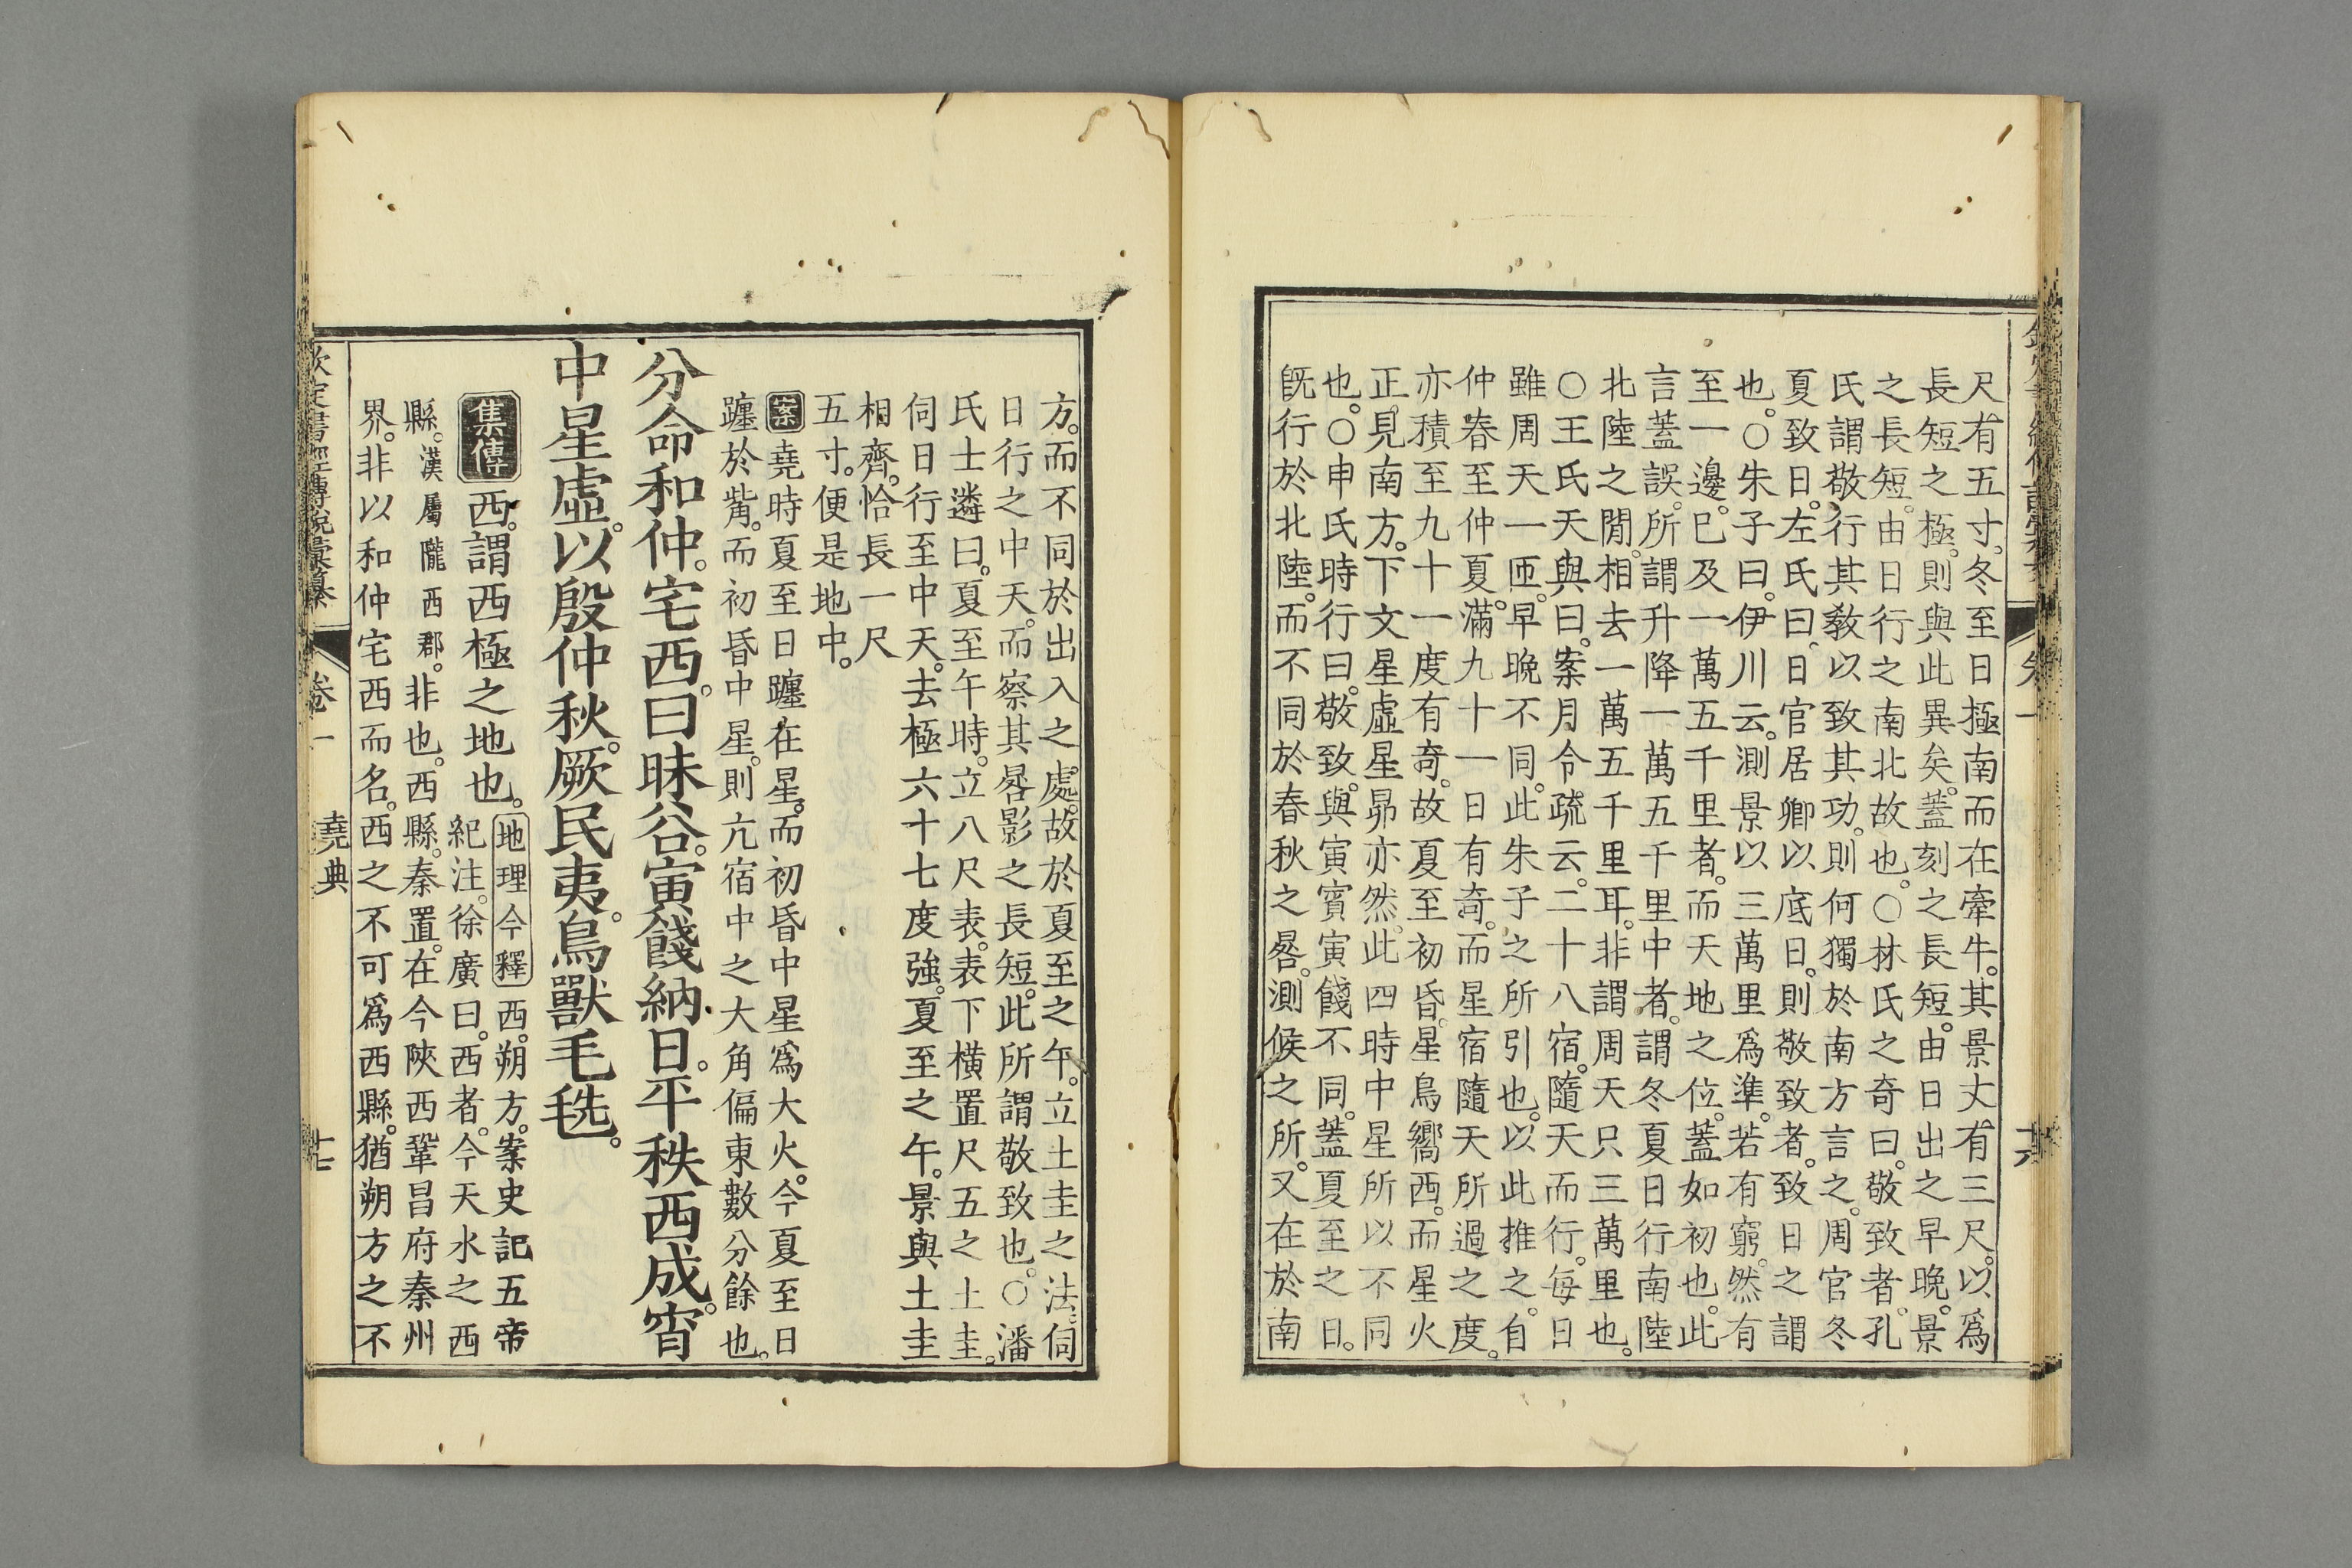 尺有五寸。冬至日極南而在牽牛。其景丈有三尺。以爲
長短之極。則與此異矣。蓋刻之長短。由日出之早晚。景
之長短。由日行之南北故也。○林氏之奇曰。敬致者。孔
氏謂敬行其敎以致其功。則何獨於南方言之。周官冬
夏致日。左氏曰。日官居卿以底日。則敬致者。致日之謂
也。○朱子曰。伊川云。測景以三萬里爲準。若有窮。然有
至一邊。已及一萬五千里者。而天地之位。蓋如初也。此
言蓋誤。所謂升降一萬五千里中者。謂冬夏日行南陸
北陸之閒。相去一萬五千里耳。非謂周天只三萬里也。
○王氏天與曰。案月令疏云。二十八宿。隨天而行。每日
雖周天一匝。早晚不同。此朱子之所引也。以此推之。自
仲春至仲夏。滿九十一日有奇。而星宿隨天所過之度。
亦積至九十一度有奇。故夏至初昏。星鳥嚮西。而星火
正見南方。下文星虛星昴亦然。此四時中星所以不同
也。○申氏時行曰。敬致。與寅賓寅餞不同。蓋夏至之日。
旣行於北陸。而不同於春秋之晷。測候之所。又在於南
欽定書經傳說彙纂 卷一 十六
方。而不同於出入之處。故於夏至之午。立土圭之法。伺
日行之中天。而察其晷影之長短。此所謂敬致也。○潘
氏士遴曰。夏至午時。立八尺表。表下橫置尺五之土圭。
伺日行至中天。去極六十七度強。夏至之午。景與土圭
相齊。恰長一尺
五寸。便是地中。
案堯時夏至日躔在星。而初昏中星爲大火。今夏至日
躔於觜。而初昏中星。則亢宿中之大角偏東數分餘也。
分命和仲。宅西。曰昧谷。寅餞納日。平秩西成。宵
中星虛。以殷仲秋。厥民夷。鳥獸毛毨。
集傳西。謂西極之地也。地理今釋西。朔方。案史記五帝
紀注。徐廣曰。西者。今天水之西
縣。漢屬隴西郡。非也。西縣。秦置。在今陝西鞏昌府秦州
界。非以和仲宅西而名。西之不可爲西縣。猶朔方之不
欽定書經傳說彙纂 卷一 堯典 十七